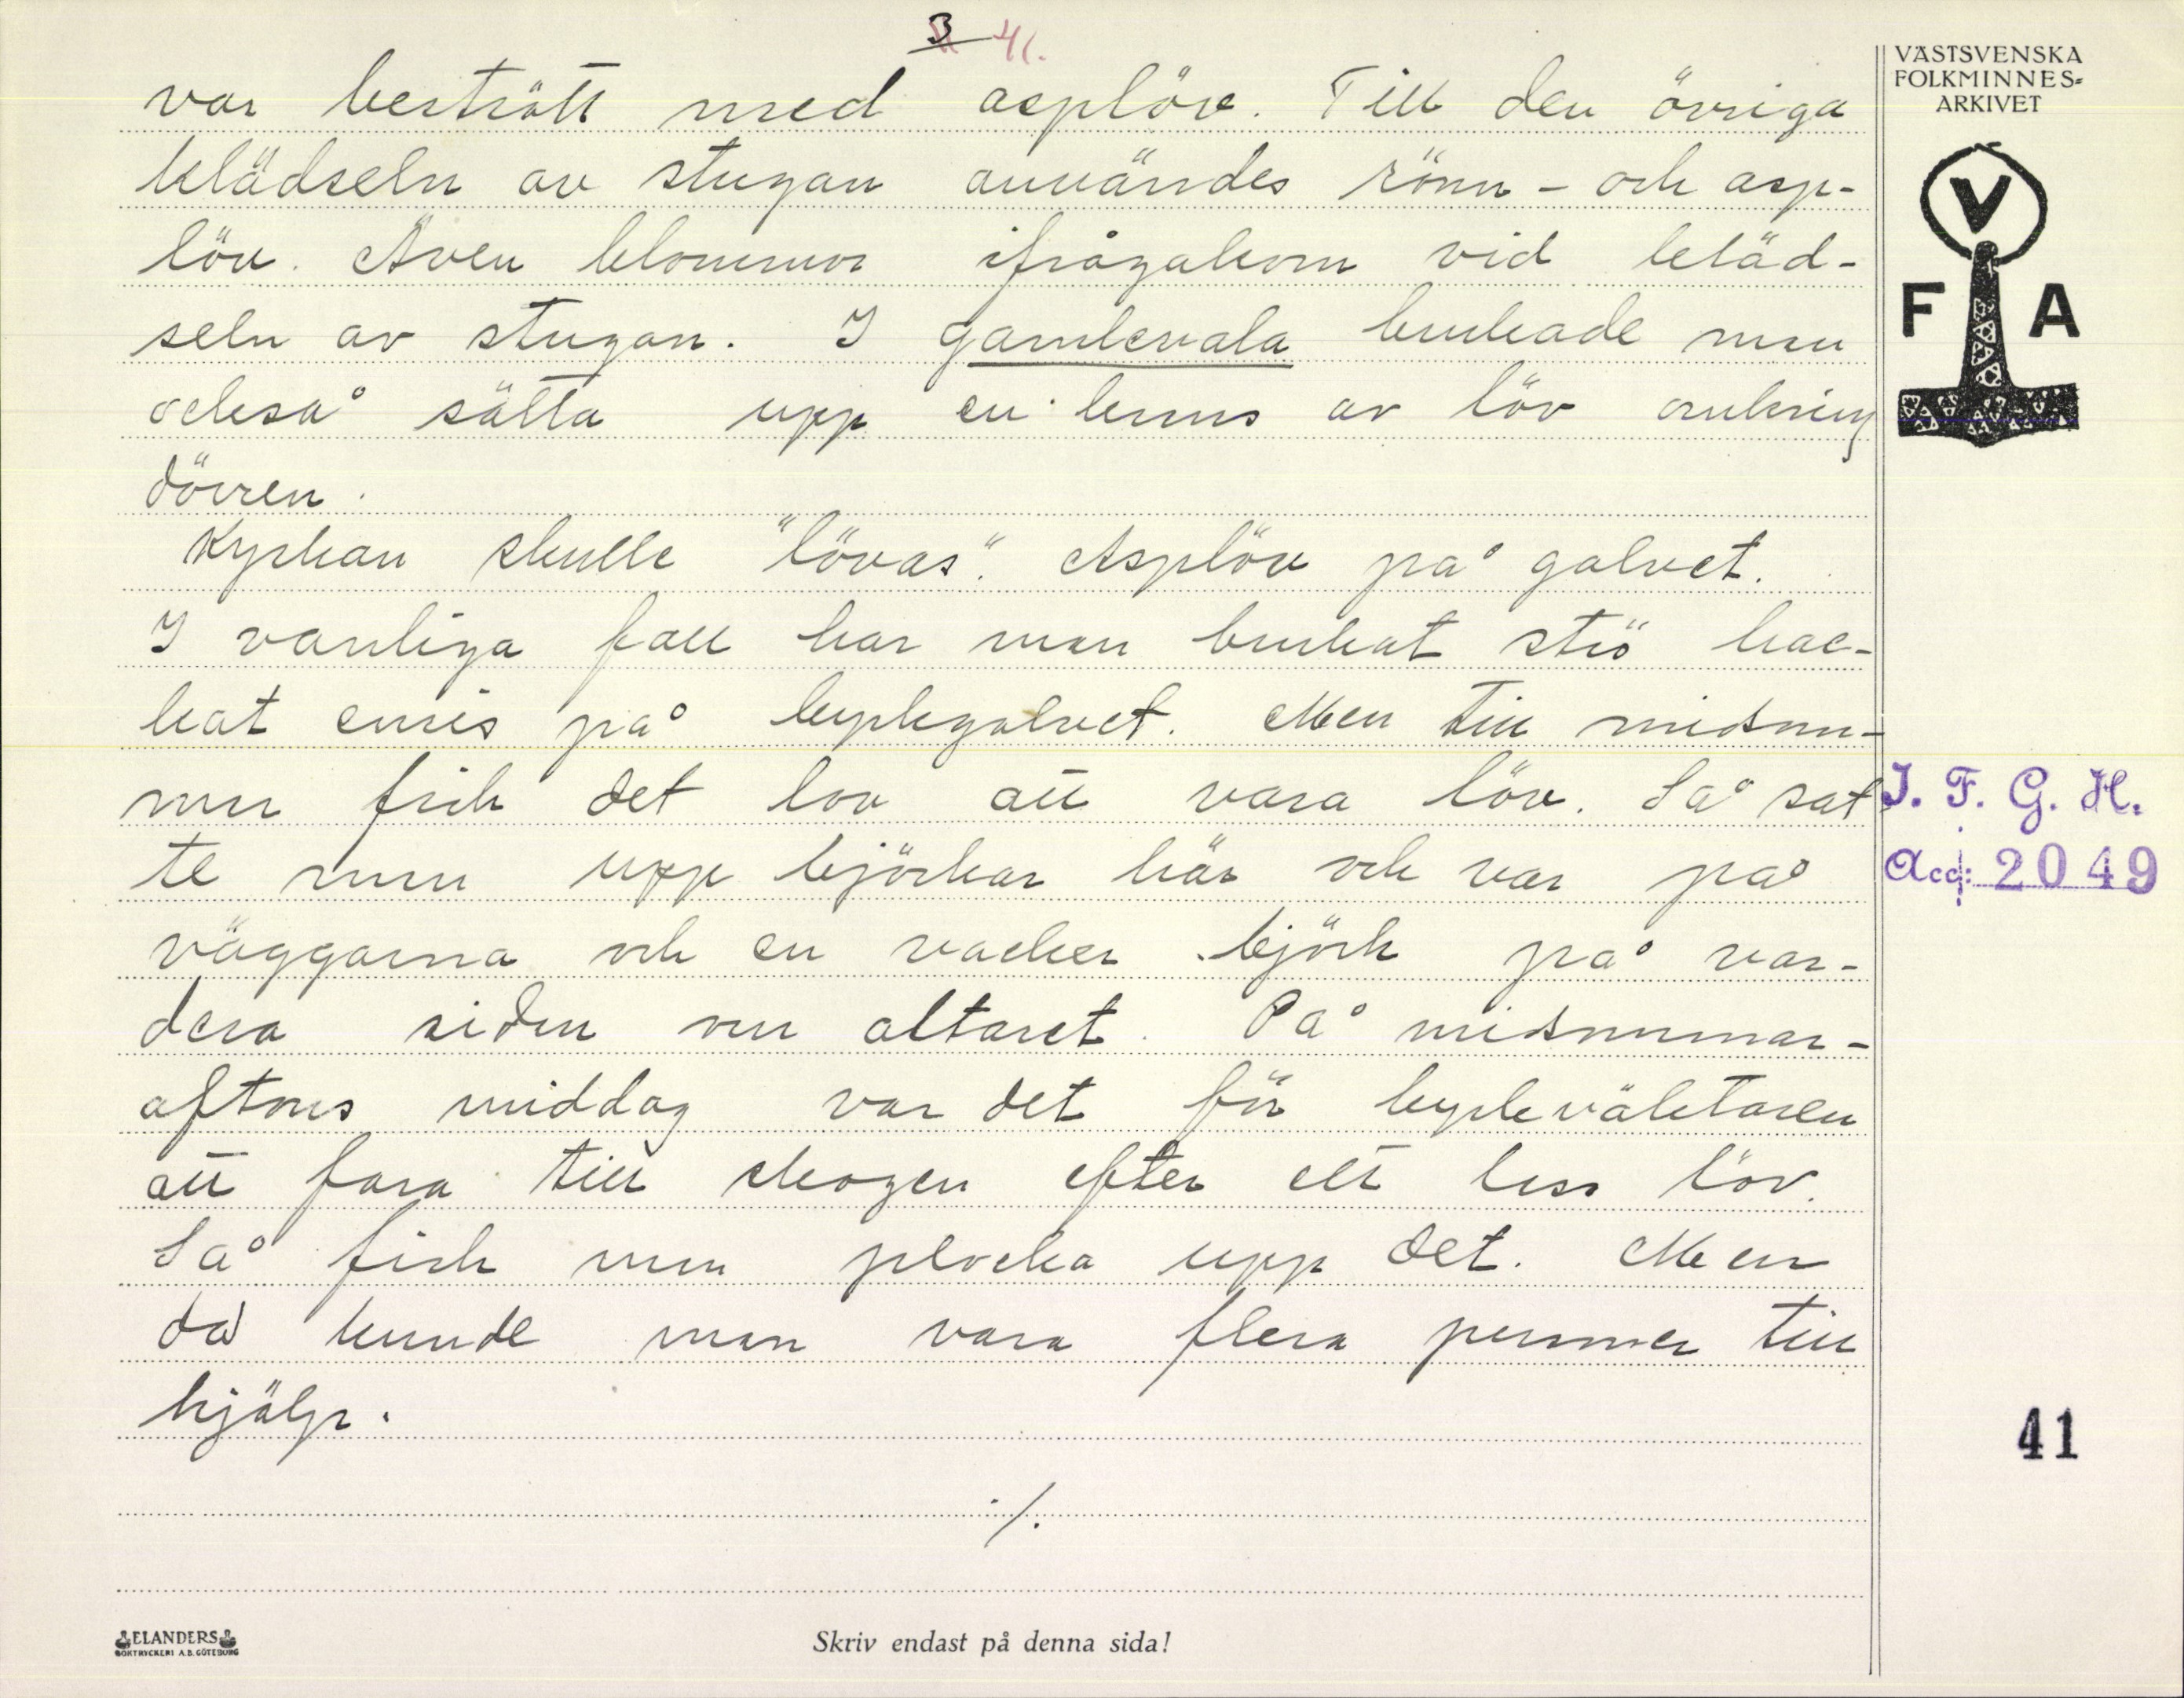 3 41.
VÄSTSVENSKA
FOLKMINNES-
ARKIVET
V
F A
var bestrött med asplöv. Till den övriga
klädseln av stugan användes rönn- och asp-
löv. Även blommor ifrågakom vid kläd-
seln av stugan. I gamlevala brukade man
också sätta upp en krans av löv omkring
dörren.
Kyrkan skulle "lövas". Asplöv på golvet.
I vanliga fall har man brukat strö hac-
kat enris på kyrkgolvet. Men till midsom-
mar fick det lov att vara löv. Så sat
te man upp björkar här och var på
väggarna och en vacker björk på var-
dera sidan om altaret. På midsommar-
aftons middag var det för kyrkväktaren
att fara till skogen efter ett lass löv.
Så fick man plocka upp det. Men
då kunde man vara flera personer till
hjälp.
./.
I. F. G. H.
Acc: 2049
41
ELANDERS
BOKTRYCKERI A.B. GÖTEBORG
Skriv endast på denna sida!